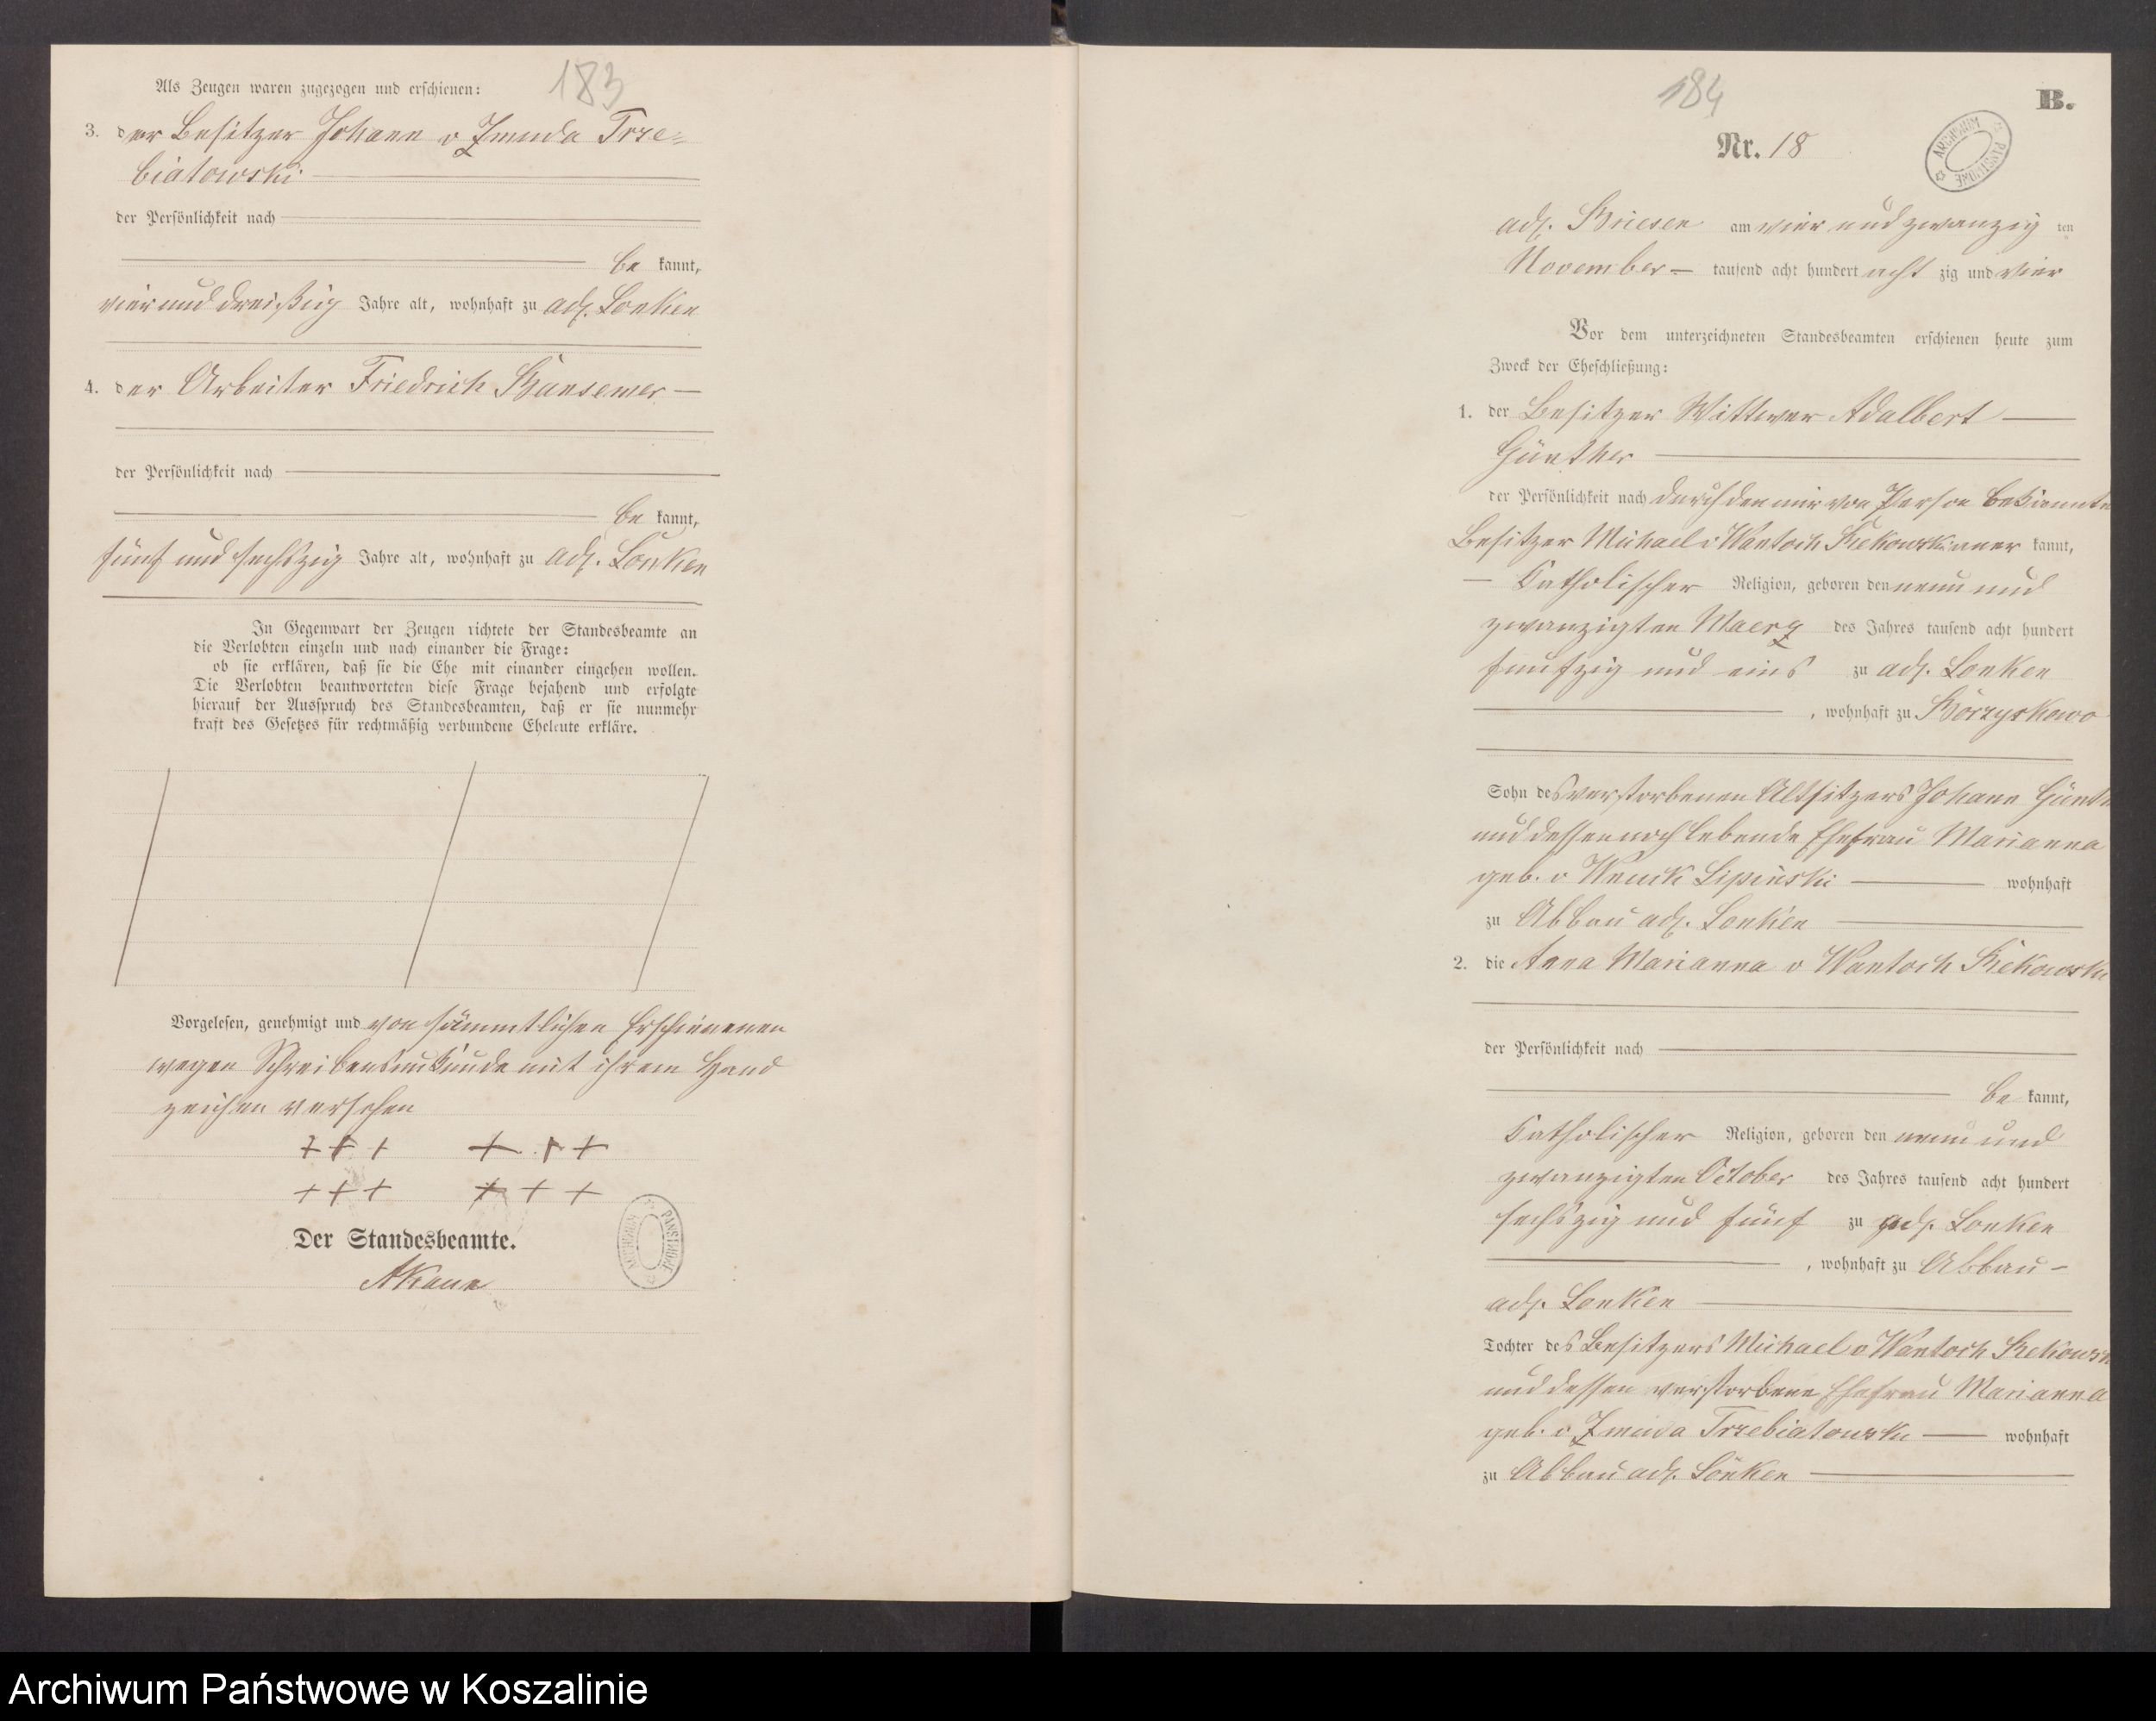 183
Als Zeugen waren zugezogen und erschienen:
3. der Besitzer Johann v Zmuda Trze=
biatowski
der Persönlichkeit nach
be kannt,
vier und dreißig Jahre alt, wohnhaft zu adl. Lonken
4. der Arbeiter Friedrich Bansemer
der Persönlichkeit nach
be kannt,
fünf und sechszig Jahre alt, wohnhaft zu adl. Lonken
In Gegenwart der Zeugen richtete der Standesbeamte an
die Verlobten einzeln und nach einander die Frage:
ob sie erklären, daß sie die Ehe mit einander eingehen wollen.
Die Verlobten beantworteten diese Frage bejahend und erfolgte
hierauf der Ausspruch des Standesbeamten, daß er sie nunmehr
kraft des Gesetzes für rechtmäßig verbundene Eheleute erkläre.
Vorgelesen, genehmigt und von sämmtlichen Erschienenen
wegen Schreibensunkunde mit ihrem Hand
zeichen versehen
+++ +++
+++ +++
Der Standesbeamte.
ARCHIWUM PAŃSTWOWE
184
B.
Nr. 18
ARCHIWUM PAŃSTWOWE
adl. Briesen am vier und zwanzig ten
November tausend acht hundert acht zig und vier
Vor dem unterzeichneten Standesbeamten erschienen heute zum
Zweck der Eheschließung:
1. der Besitzer Wittwer Adalbert
Günther
der Persönlichkeit nach durch den mir von Person bekannten
Besitzer Michael v Wantoch Rekowski aner kannt,
Catholischer Religion, geboren den neun und
zwanzigten Maerz des Jahres tausend acht hundert
funfzig und eins zu adl. Lonken
, wohnhaft zu Borzyskowo
Sohn des verstorbenen Altsitzers Johann Günth
und dessen noch lebende Ehefrau Marianna
geb. v Wnuck Lipinski wohnhaft
zu Abbau adl. Lonken
2. die Anna Marianna v Wantoch Rekowski
der Persönlichkeit nach
be kannt,
Catholischer Religion, geboren den neun und
zwanzigten October des Jahres tausend acht hundert
sechszig und fünf zu adl. Lonken
, wohnhaft zu Abbau-
adl. Lonken
Tochter des Besitzers Michael v Wantoch Rekowsk
und dessen verstorbene Ehefrau Marianna
geb. v Zmuda Trzebiatowski wohnhaft
zu Abbau adl. Lonken
Archiwum Państwowe w Koszalinie